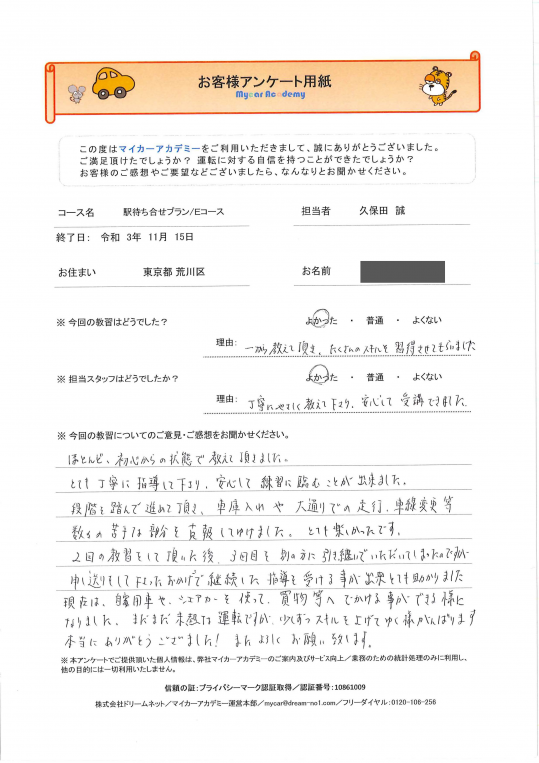 お客様アンケート用紙
Mycar Academy
この度はマイカーアカデミーをご利用いただきまして、誠にありがとうございました。
ご満足頂けたでしょうか？ 運転に対する自信を持つことができたでしょうか？
お客様のご感想やご要望などございましたら、なんなりとお聞かせください。
コース名 駅待ち合せプラン/Eコース 担当者 久保田 誠
終了日： 令和 3年 11月 15日
お住まい 東京都 荒川区 お名前
※ 今回の教習はどうでした？ よかった ・ 普通 ・ よくない
理由： 一から教えて頂き、たくさんのスキルを習得させてもらいました
※ 担当スタッフはどうでしたか？ よかった ・ 普通 ・ よくない
理由： 丁寧にやさしく教えて下さり、安心して受講できました。
※ 今回の教習についてのご意見・ご感想をお聞かせください。
ほとんど、初心からの状態で教えて頂きました。
とても丁寧に指導して下さり、安心して練習に臨むことが出来ました。
段階を踏んで進めて頂き、車庫入れや大通りでの走行、車線変更等
数々の苦手な部分を克服してゆけました。とても楽しかったです。
2回の教習をして頂いた後、3回目を別の方に引き継いでいただいてしまったのですが
申し送りをして下さったおかげで継続した指導を受ける事が出来とても助かりました
現在は、自家用車や、シェアカーを使って、買物等へでかける事ができる様に
なりました。まだまだ未熟な運転ですが、少しずつスキルを上げてゆく様がんばります
本当にありがとうございました! またよろしくお願い致します。
※ 本アンケートでご提供頂いた個人情報は、弊社マイカーアカデミーのご案内及びサービス向上／業務のための統計処理のみに利用し、
他の目的には一切利用いたしません。
信頼の証：プライバシーマーク認証取得／認証番号：10861009
株式会社ドリームネット／マイカーアカデミー運営本部／mycar@dream-no1.com／フリーダイヤル：0120-106-256